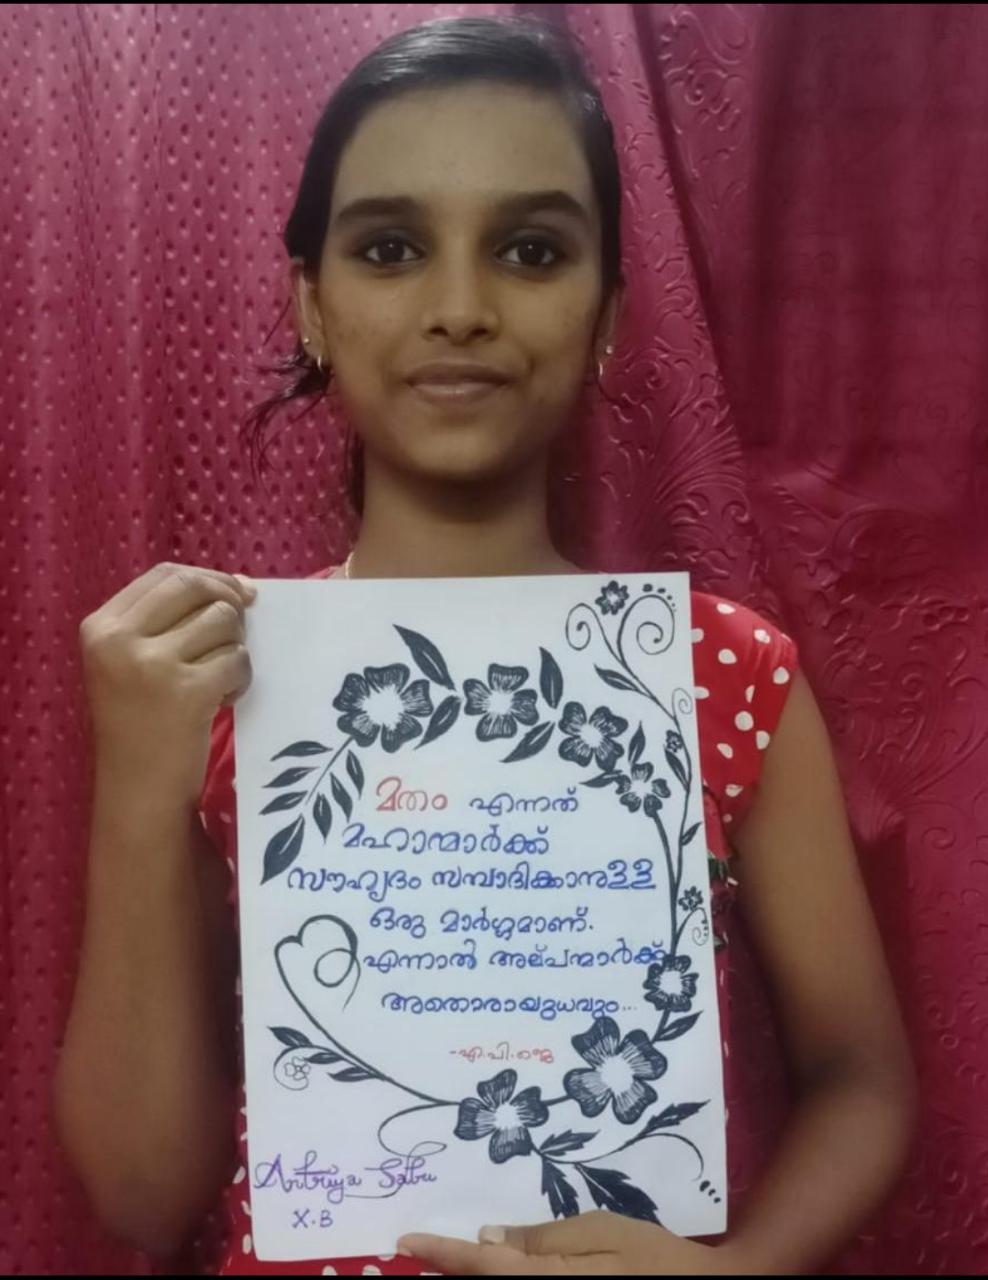 മതം എന്നത്
മഹാന്മാർക്ക്
സൗഹൃദം സമ്പാദിക്കാനുള്ള
ഒരു മാർഗ്ഗമാണ്.
എന്നാൽ അല്പന്മാർക്ക്
അതൊരായുധവും...
-എ.പി.ജെ
Antriya Sabu
X.B